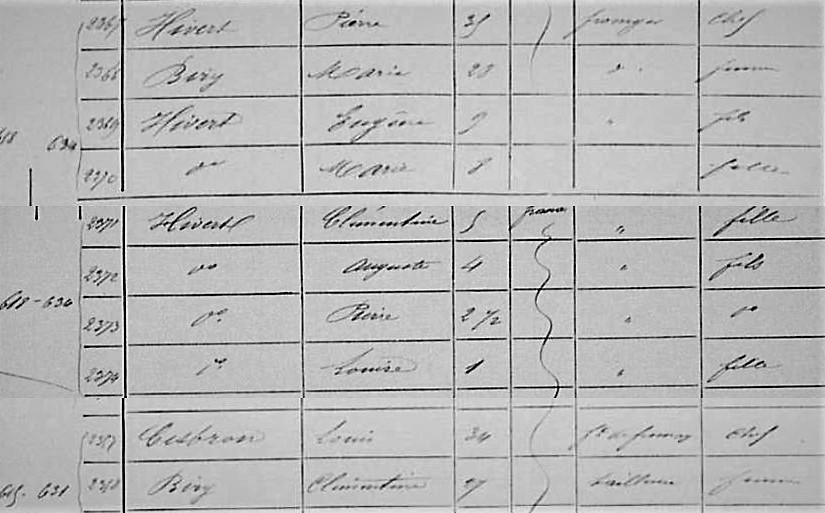 2367 Hivert Pierre 35 fromager chef
2368 Biry Marie 28 do femme
2369 Hivert Eugène 9 " fils
618 630
2370 do Marie 8 fille
2371 Hivert Clémentine 5 france " fille
2372 do Auguste 4 " fils
618-630
2373 do Pierre 2 1/2 " do
2374 do Louise 1 " fille
2377 Cesbron Louis 34 chef
2378 Biry Clémentine 27 tailleuse femme
631